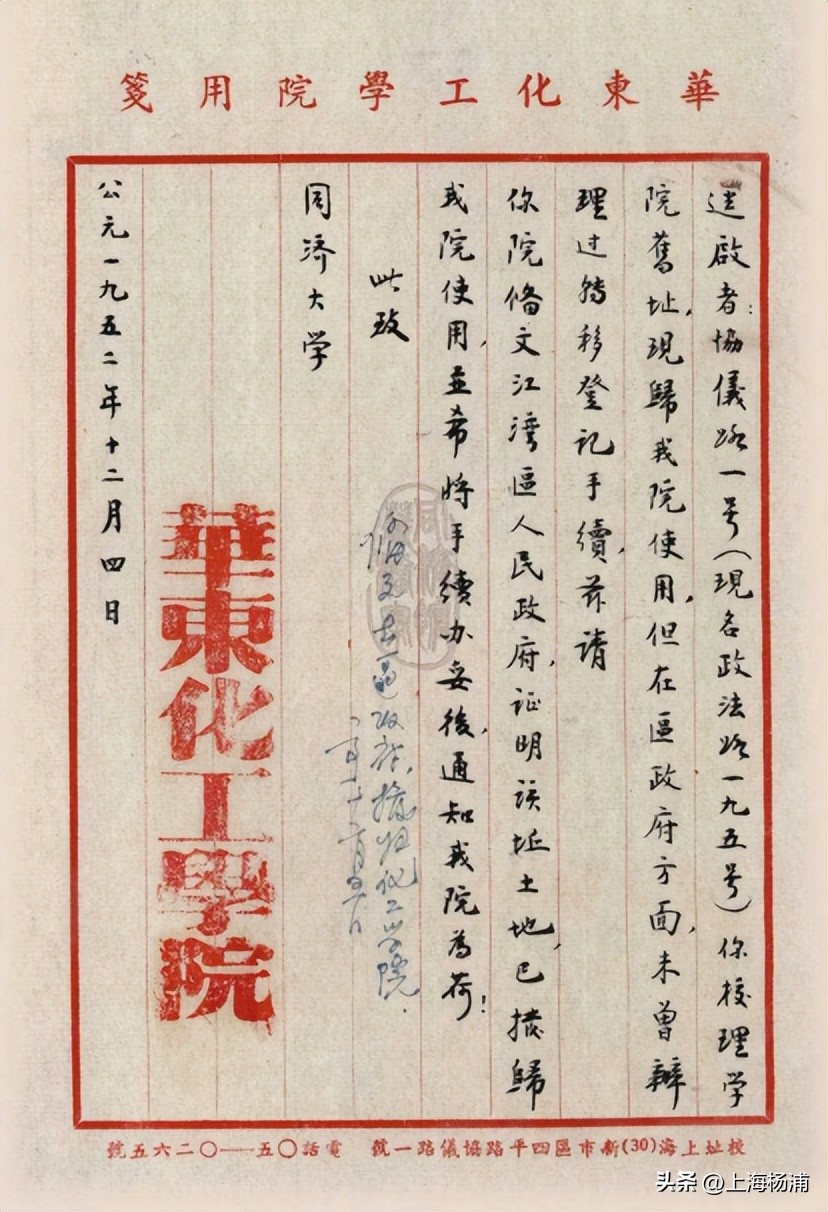 華東化工學院用箋
迳啟者：協儀路一号（現名政法路一九五号）你校理学
院舊址，現歸我院使用，但在區政府方面，未曾辦
理过轉移登记手續，茲請
你院俻文江湾區人民政府，证明该址土地，已撥歸
我院使用，並希将手續办妥後，通知我院為荷！
此致
同济大学
公元一九五二年十二月四日
華東化工學院
撥归化工学院.
校址上海(30)新市區四平路協儀路一號 電話〇五一—〇二六五號
头条 @上海杨浦